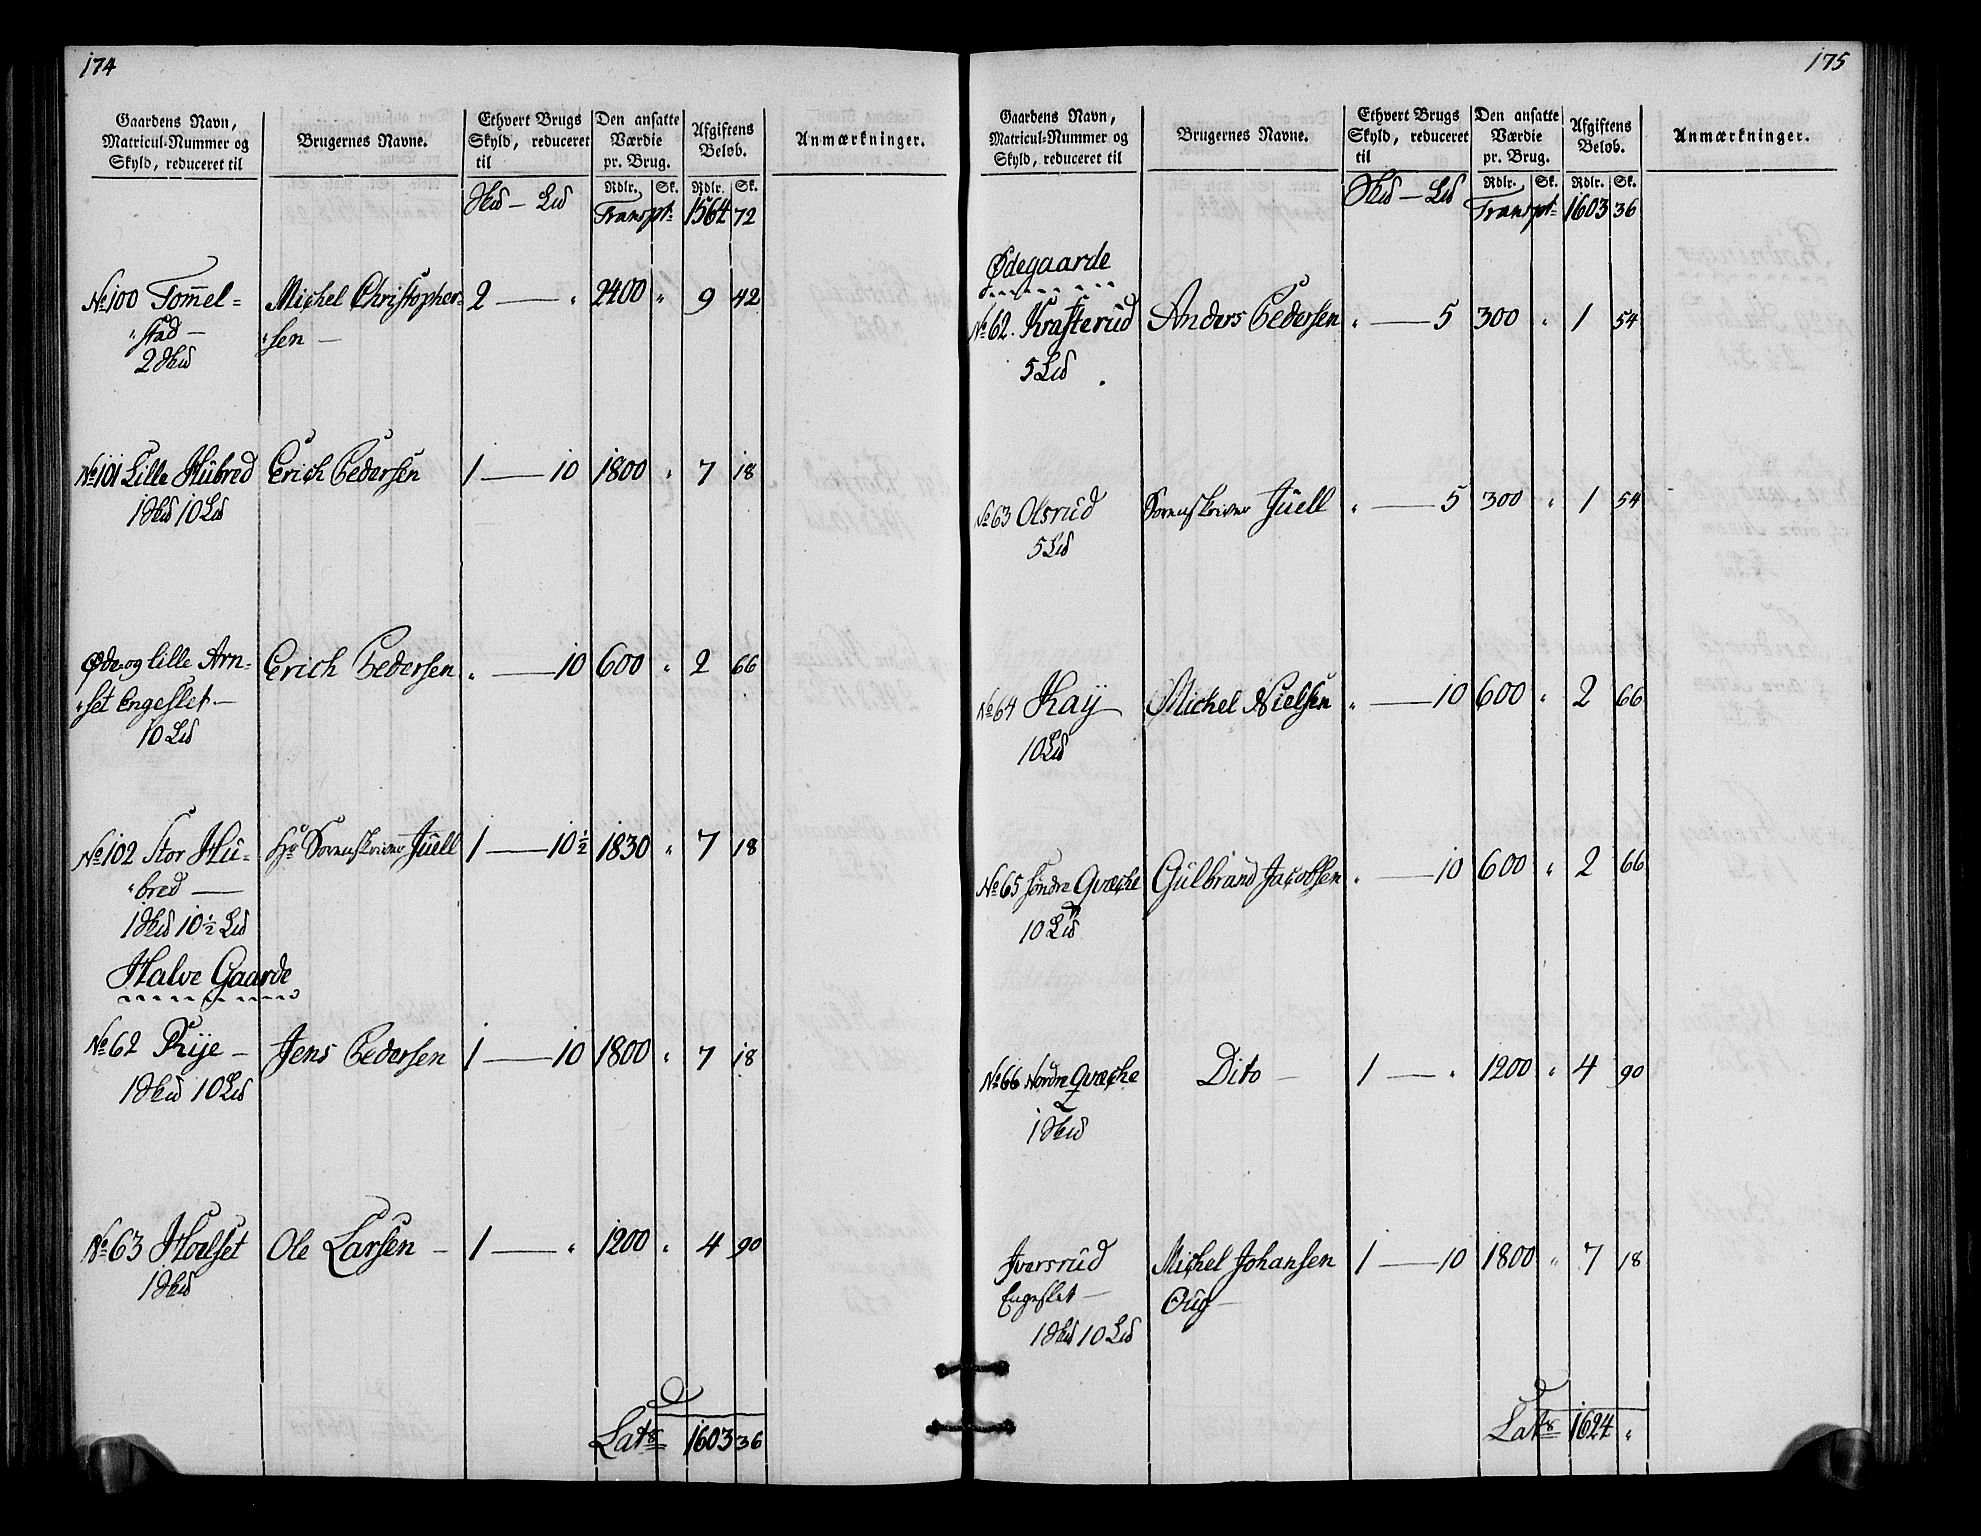 174
Gaardens Navn, Matricul-Nummer og Skyld, reduceret til | Brugernes Navne. | Ethvert Brugs Skyld, reduceret til | Den ansatte Værdie pr. Brug. | Afgiftens Beløb. | Anmærkninger.
Rdlr. | Sk. | Rdlr. | Sk.
Hud — Lid | Transpt: | 1564 | 72
No 100 Tom̄el= | Michel Christopher= | 2 — „ | 2400 „ | 9 | 42
„stad — | „sen —
2 Hud
No 101 Lille Hubred | Erich Pedersen | 1 — 10 | 1800 „ | 7 | 18
1 Hud 10 Lid
Øde og lille Arn= | Erich Pedersen | „ — 10 | 600 „ | 2 | 66
„set Engeslet —
10 Lid
No 102 Stor Hu= | Hr Sorenskriver Juell | 1 — 10½ | 1830 „ | 7 | 18
„bred —
1 Hud 10½ Lid
Halve Gaarde
No 62 Rye — | Jens Pedersen | 1 — 10 | 1800 „ | 7 | 18
1 Hud 10 Lid
No 63 Hoelset | Ole Larsen — | 1 — „ | 1200 „ | 4 | 90
1 Hud
Lats | 1603 | 36
175
Gaardens Navn, Matricul-Nummer og Skyld, reduceret til | Brugernes Navne. | Ethvert Brugs Skyld, reduceret til | Den ansatte Værdie pr. Brug. | Afgiftens Beløb. | Anmærkninger.
Rdlr. | Sk. | Rdlr. | Sk.
Hud — Lid | Transpt: | 1603 | 36
Ødegaarde
No 62. Krafterud | Anders Pedersen | „ — 5 | 300 „ | 1 | 54
5 Lid
No 63 Olsrud | Sorenskriver Juell | „ — 5 | 300 „ | 1 | 54
5 Lid
No 64 Kaÿ | Michel Nielsen | „ — 10 | 600 „ | 2 | 66
10 Lid
No 65 søndre Qvæche | Gulbrand Jacobsen | „ — 10 | 600 „ | 2 | 66
10 Lid
No 66 Nordre Qvæche | Dito — | 1 — „ | 1200 „ | 4 | 90
1 Hud
Iversrud | Michel Johansen | 1 — 10 | 1800 „ | 7 | 18
Engeslet — | Oug —
1 Hud 10 Lid
Lats | 1624 | „